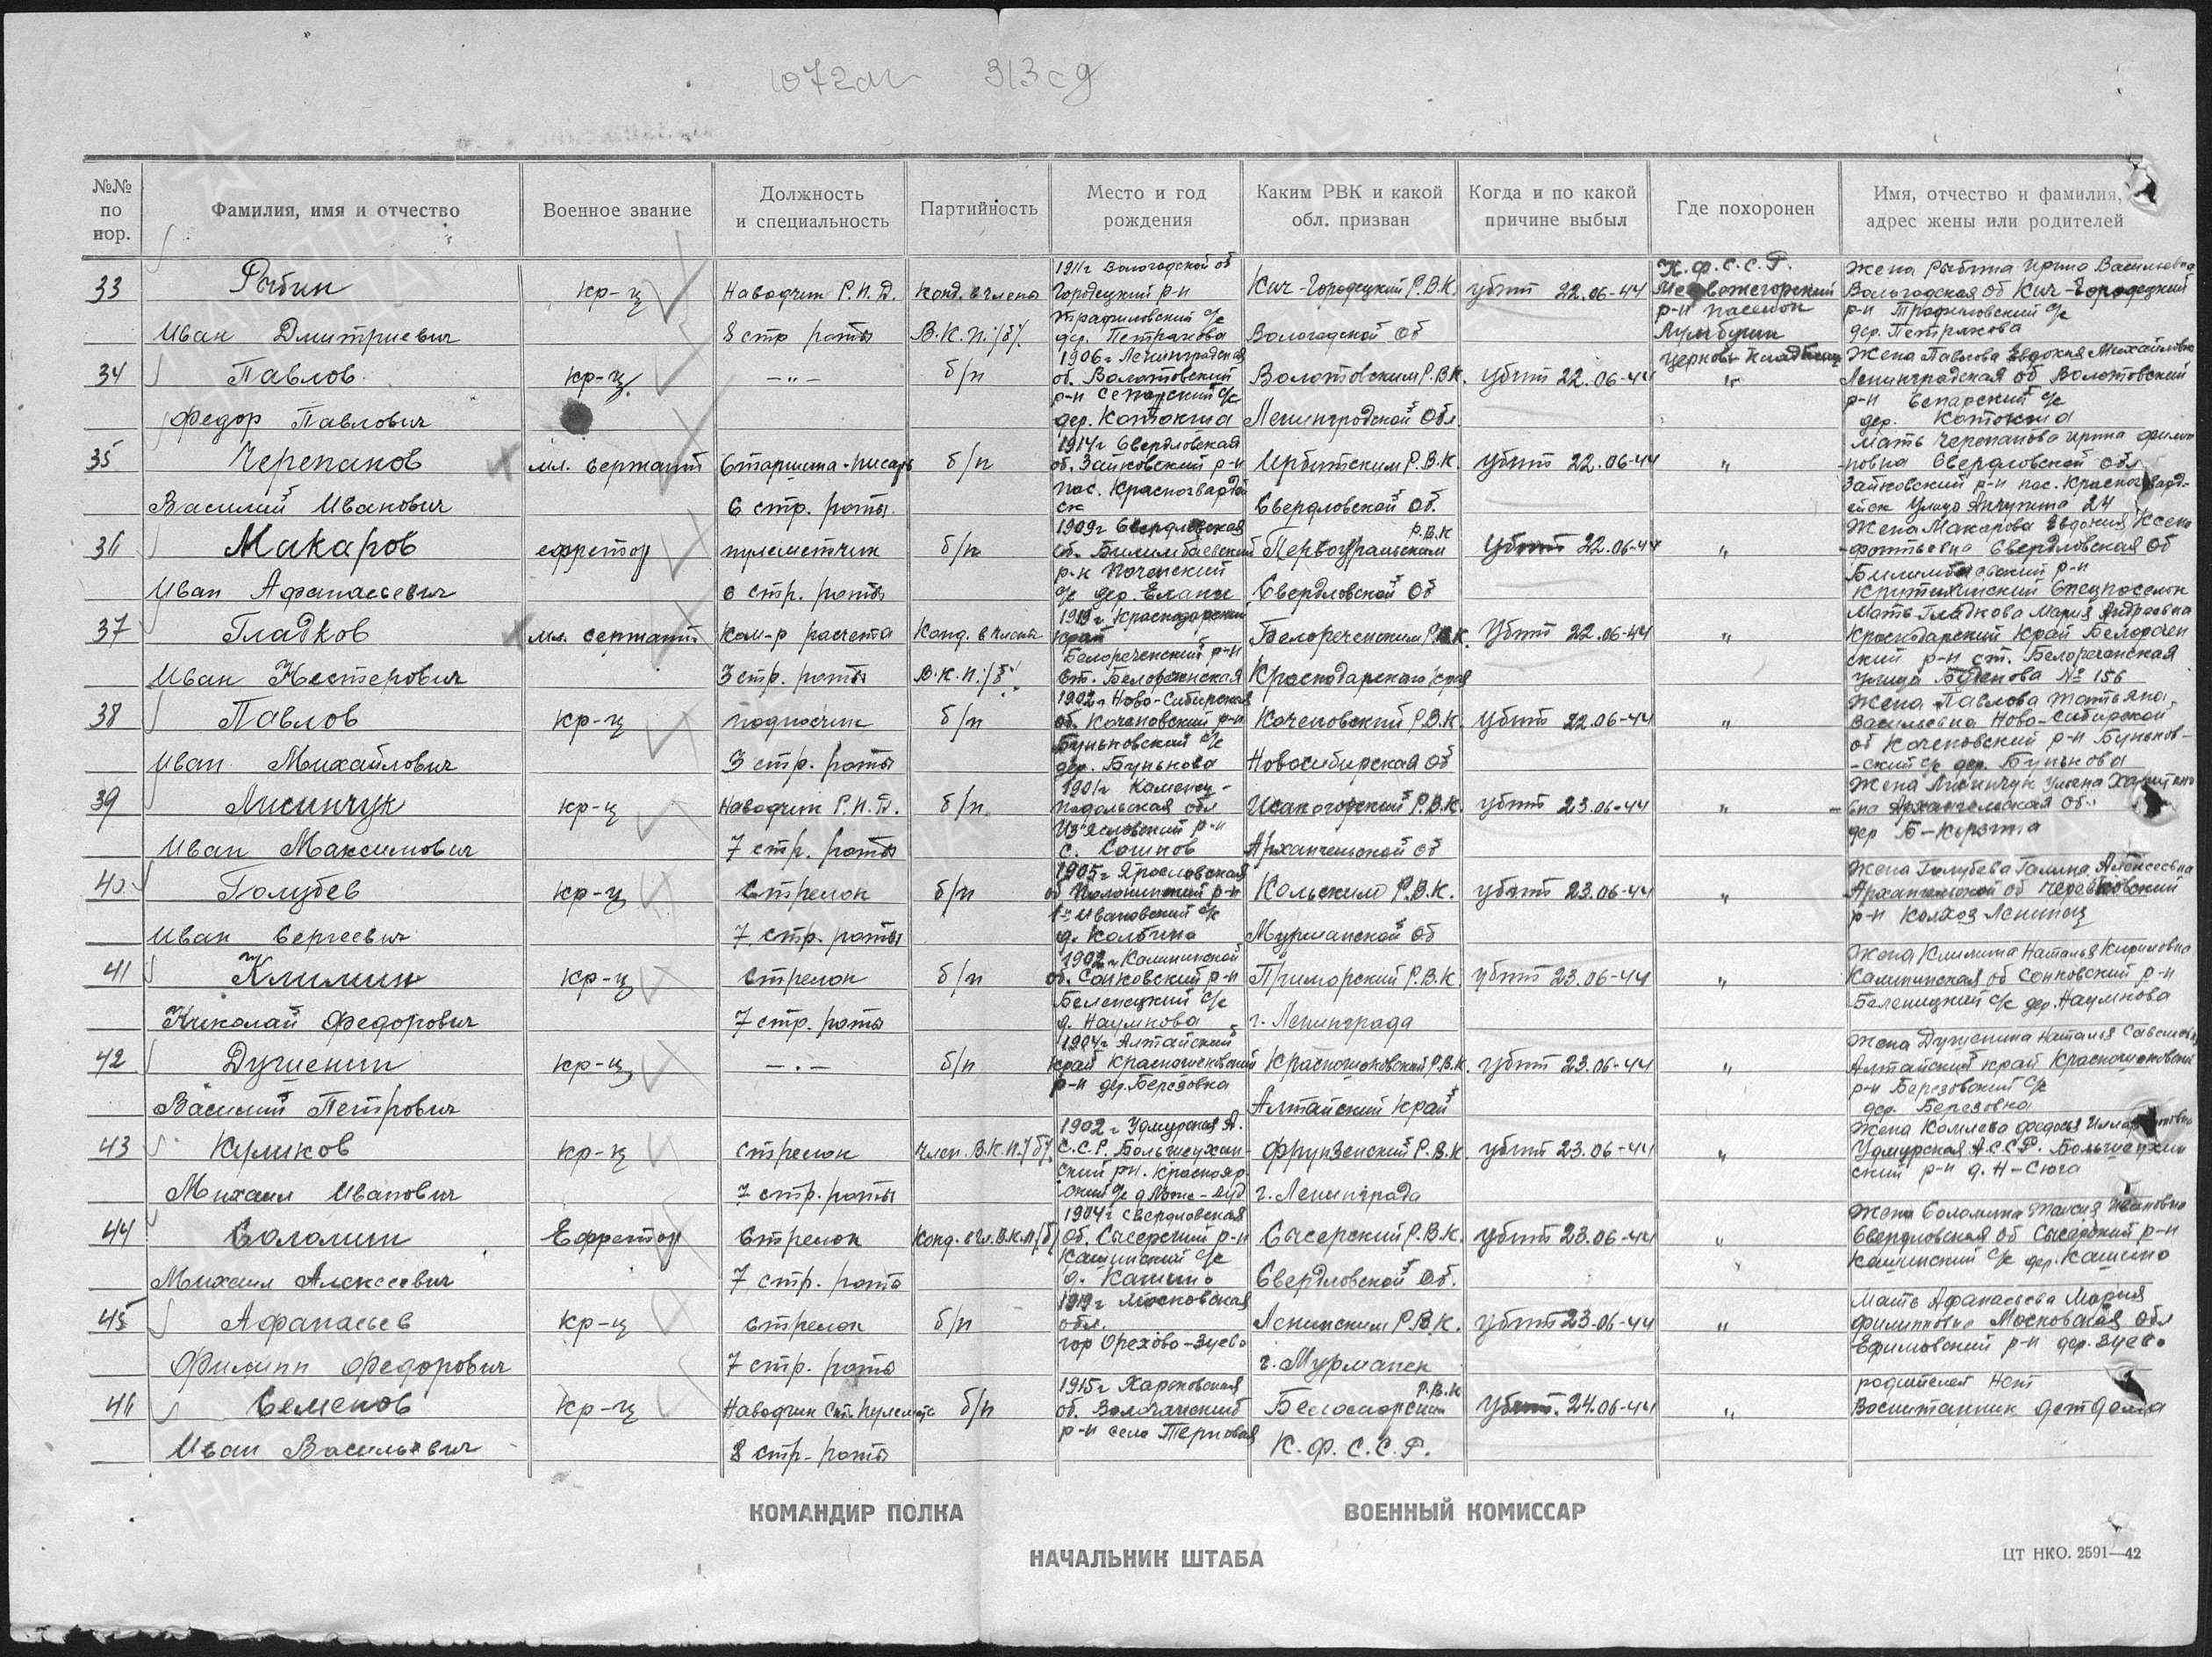 313 сд
№№ по пор.
Фамилия, имя и отчество
Военное звание
Должность и специальность
Партийность
Место и год рождения
Каким РВК и какой обл. призван
Когда и по какой причине выбыл
Где похоронен
Имя, отчество и фамилия, адрес жены или родителей
33 Рябин кр-ц Наводчик Р.П.Д. Конд. в члены 1911г Вологодской об Городецкий р-н Кич-Городецкий Р.В.К. убит 22.06-44 К.Ф.С.С.Р. Жена Рябина Ирина Васильевна
Вологодская об Кич-Городецкий
Иван Дмитриевич 8 стр роты В.К.П./б/. дер. Петракова Вологодской об р-н пасёлок р-н Трофиловский с/с
дер. Петракова
34 Павлов кр-ц. —"— б/п 1906г Ленинградская об. Волотовский Волотовским Р.В.К. Убит 22.06-44 " Жена Павлова Евдокия Михайловна
Ленинградская об Волотовский
Федор Павлович дер. Котокина Ленинградской Обл. р-н с/с
дер. Котокина
35 Черепанов мл. сержант Старшина-писарь б/п 1914г Свердловская об. Зайковский р-н Ирбитским Р.В.К. Убит 22.06-44 " Мать Черепанова Ирина Филип
-повна Свердловской обл
Василий Иванович 6 стр. роты. пос. Красногвардей ск Свердловской об. Зайковский р-н пос. Красногвард-
ейск Улица 24
36 Макаров ефрейтор пулеметчик б/п 1909г Свердловская об. Билимбаевский Р.В.К Первоуральским Убит 22.06-44 " Жена Макарова Евдокия Ксено
-фонтьевна Свердловская об
Иван Афанасьевич 6 стр. роты р-н Поченский с/с дер. Елани Свердловской об Билимбаевский р-н
Спецпоселок
37 Гладков мл. сержант Ком-р расчета Конд. в члены 1919г Краснодарский край Белореченским Р.В.К. Убит 22.06-44 " Мать Гладкова Мария Андреевна
Краснодарский Край Белоречен
Иван Нестерович 3 стр. роты В.К.П./б/ Белореченский р-н ст. Белореченская Краснодарского края ский р-н ст. Белореченская
улица № 156
38 Павлов кр-ц подносчик б/п 1902г Ново-Сибирская об. Коченовский р-н Коченовский Р.В.К. Убит 22.06-44 " Жена Павлова Татьяна
Васильевна Ново-Сибирской
Иван Михайлович 3 стр. роты Буньковский с/с дер. Бунькова Новосибирская об об Коченовский р-н Буньков-
-ский с/с дер. Бунькова
39 Лисинчук кр-ц Наводчик Р.П.Д. б/п. 1901г Каменец-Подольская обл Исакогорской Р.В.К. убит 23.06-44 " Жена Лисинчук Харитоно
вна Архангельская об.
Иван Максимович 7 стр. роты Из'яславский р-н Архангельской об дер
40 Голубев кр-ц Стрелок б/п 1905г Ярославская об р-н Кольским Р.В.К. убит 23.06-44 " Жена Голубева Галина Алексеевна
Архангельской об Черевковский
Иван Сергеевич 7 стр. роты 1й Ивановский с/с д. Колбина Мурманской об р-н Колхоз Ленинец
41 Климин кр-ц Стрелок б/п 1902г Калининской об. Сонковский р-н Приморский Р.В.К. убит 23.06-44 " Жена Климина Наталья Кириловна
Калининская об Сонковский р-н
Николай Федорович 7 стр. роты Беленицкий с/с д. Наумкова г. Ленинграда Беленицкий с/с дер. Наумкова
42 Душенин кр-ц —.— б/п 1904г Алтайский край Краснощековский Краснощоковский Р.В.К. убит 23.06-44 " Жена Душенина Наталья
Алтайский край Краснощоковский
Василий Петрович р-н дер. Березовка Алтайский край р-н Березовский с/с
дер. Березовка
43 Куликов кр-ц стрелок Член. В.К.П./б/. 1902г Удмурская А.С.С.Р. Фрунзенский Р.В.К убит 23.06-44 " Жена Федосья
Удмурская А.С.С.Р.
Михаил Иванович 7 стр. роты г. Ленинграда ский р-н д. Н-Сюга
44 Соломин Ефрейтор Стрелок Конд. в чл. В.К.П./б/ 1904г Свердловская об. Сысерский р-н Сысерский Р.В.К. убит 23.06-44 " Жена Соломина Таисия Ивановна
Свердловская об Сысерский р-н
Михаил Алексеевич 7 стр. роты Кашинский с/с д. Кашино Свердловской об. Кашинский с/с дер. Кашино
45 Афанасьев кр-ц Стрелок б/п 1919г Московская обл. Ленинским Р.В.К. убит 23-06-44 " Мать Афанасьева Мария
Филиповна Московская обл
Филипп Федорович 7 стр. роты гор Орехово-Зуево г. Мурманск р-н дер. Зуево
46 Семенов кр-ц Наводчик Ст. пулемета б/п 1915г Харьковская об. Волчанский Р.В.К Беломорским Убит. 24.06-44 " родителей нет
Воспитанник детдома
Иван Васильевич 8 стр. роты р-н село Терновая К.Ф.С.С.Р.
КОМАНДИР ПОЛКА
ВОЕННЫЙ КОМИССАР
НАЧАЛЬНИК ШТАБА
ЦТ НКО. 2591—42